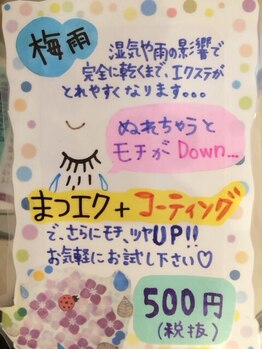 梅雨
湿気や雨の影響で
完全に乾くまで、エクステが
とれやすくなります。。。
ぬれちゃうと
モチがDown...
まつエク+コーティング
で、さらにモチ、ツヤUP!!
お気軽にお試し下さい♡
500円
(税抜)